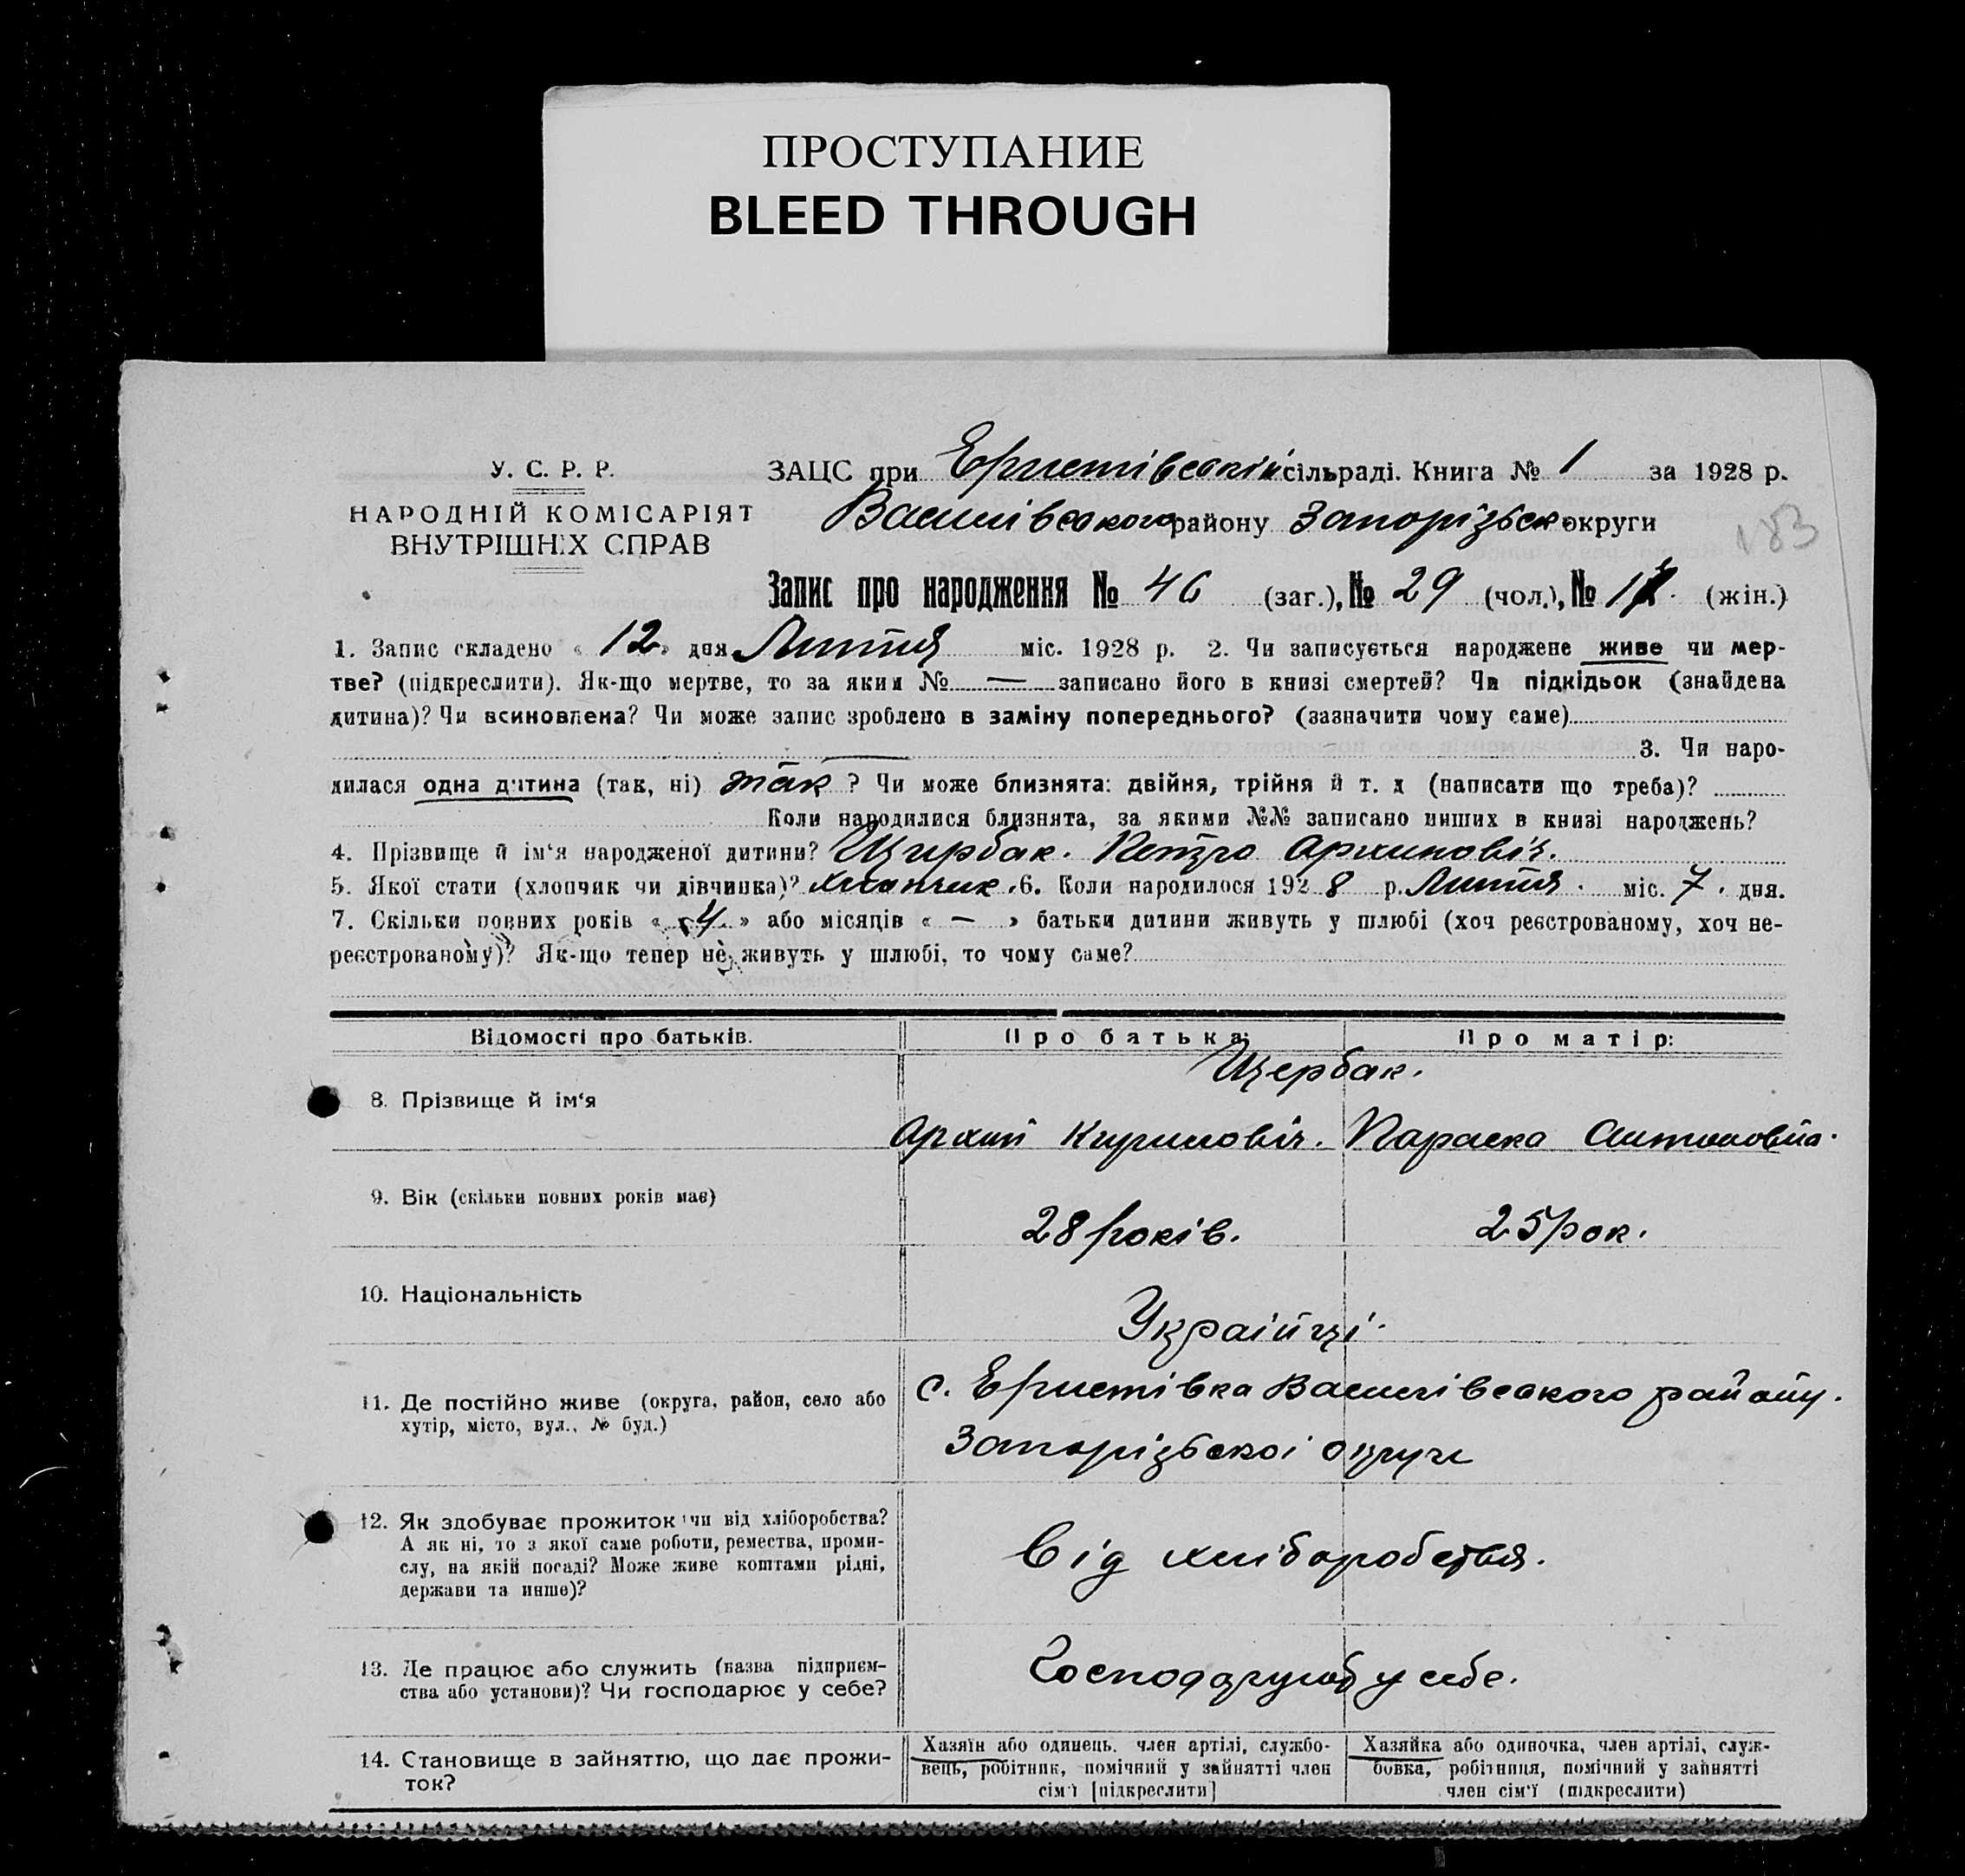 ПРОСТУПАНИЕ
BLEED THROUGH
У. С. Р. Р.
НАРОДНІЙ КОМІСАРІЯТ
ВНУТРІШНІХ СПРАВ
ЗАЦС при Еристівській сільраді. Книга № 1 за 1928 р.
Василівського району Запорізьк округи
Запис про народження № 46 (заг.), № 29 (чол.), № 17 (жін.)
1. Запис складено « 12 » дня Липня міс. 1928 р. 2. Чи записується народжене живе чи мер-
тве? (підкреслити). Як-що мертве, то за яким № — записано його в книзі смертей? Чи підкідьок (знайдена
дитина)? Чи всиновлена? Чи може запис зроблено в заміну попереднього? (зазначити чому саме)
3. Чи наро-
дилася одна дитина (так, ні) так ? Чи може близнята: двійня, трійня й т. д (написати що треба)?
Коли народилися близнята, за якими №№ записано инших в книзі народжень?
4. Прізвище й ім‘я народженої дитини? Щирбак. Петро Архипович.
5. Якої стати (хлопчик чи дівчинка)? хлопчик. 6. Коли народилося 1928 р. Липня. міс. 7. дня.
7. Скільки повних років « 4 » або місяців « — » батьки дитини живуть у шлюбі (хоч реєстрованому, хоч не-
реєстрованому)? Як-що тепер не живуть у шлюбі, то чому саме?
Відомості про батьків.
Про батька:
Про матір:
Щербак.
8. Прізвище й ім‘я
Архип Кирилович. Параска Антоновна.
9. Вік (скільки повних років має)
28 років.
25 рок.
10. Національність
Украінці.
11. Де постійно живе (округа, район, село або
хутір, місто, вул., № буд.)
с. Еристівка Василівського району.
Запорізькоі округи
12. Як здобуває прожиток чи від хліборобства?
А як ні, то з якої саме роботи, ремества, проми-
слу, на якій посаді? Може живе коштами рідні,
держави та инше)?
Від хліборобства.
13. Де працює або служить (назва підприєм-
ства або установи)? Чи господарює у себе?
у себе.
14. Становище в зайняттю, що дає прожи-
ток?
Хазяїн або одинець, член артілі, службо-
вець, робітник, помічний у зайнятті член
сім‘ї [підкреслити]
Хазяйка або одиночка, член артілі, служ-
бовка, робітниця, помічний у зайнятті
член сім‘ї (підкреслити)